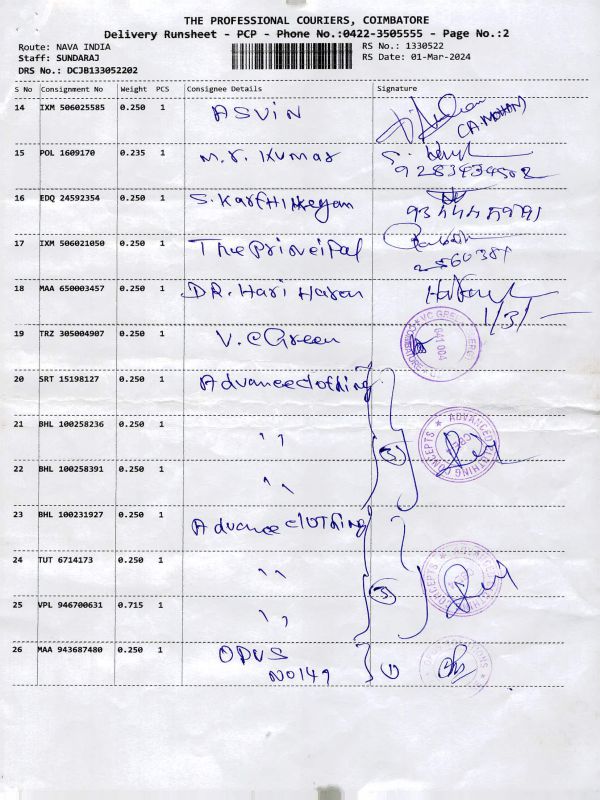 THE PROFESSIONAL COURIERS, COIMBATORE
Delivery Runsheet - PCP - Phone No.:0422-3505555 - Page No.:2
Route: NAVA INDIA
RS No.: 1330522
Staff: SUNDARAJ
RS Date: 01-Mar-2024
DRS No.: DCJB133052202
S No Consignment No Weight PCS Consignee Details Signature
14 IXM 506025585 0.250 1 ASVIN
(A.MOHAN)
15 POL 1609170 0.235 1 M.S. Kumar
16 EDQ 24592354 0.250 1 S. Karthikeyan
17 IXM 506021050 0.250 1 The Principal
18 MAA 650003457 0.250 1 DR. Hari Haran
1/3/
19 TRZ 305004907 0.250 1 V.C Green
641 004
20 SRT 15198127 0.250 1 Advance clothing
21 BHL 100258236 0.250 1 ''
3
ADVANCED CLOTHING CONCEPTS
22 BHL 100258391 0.250 1 ''
23 BHL 100231927 0.250 1 Advance clothing
24 TUT 6714173 0.250 1 ''
3
25 VPL 946700631 0.715 1 ''
26 MAA 943687480 0.250 1 OPUS
NO149
1